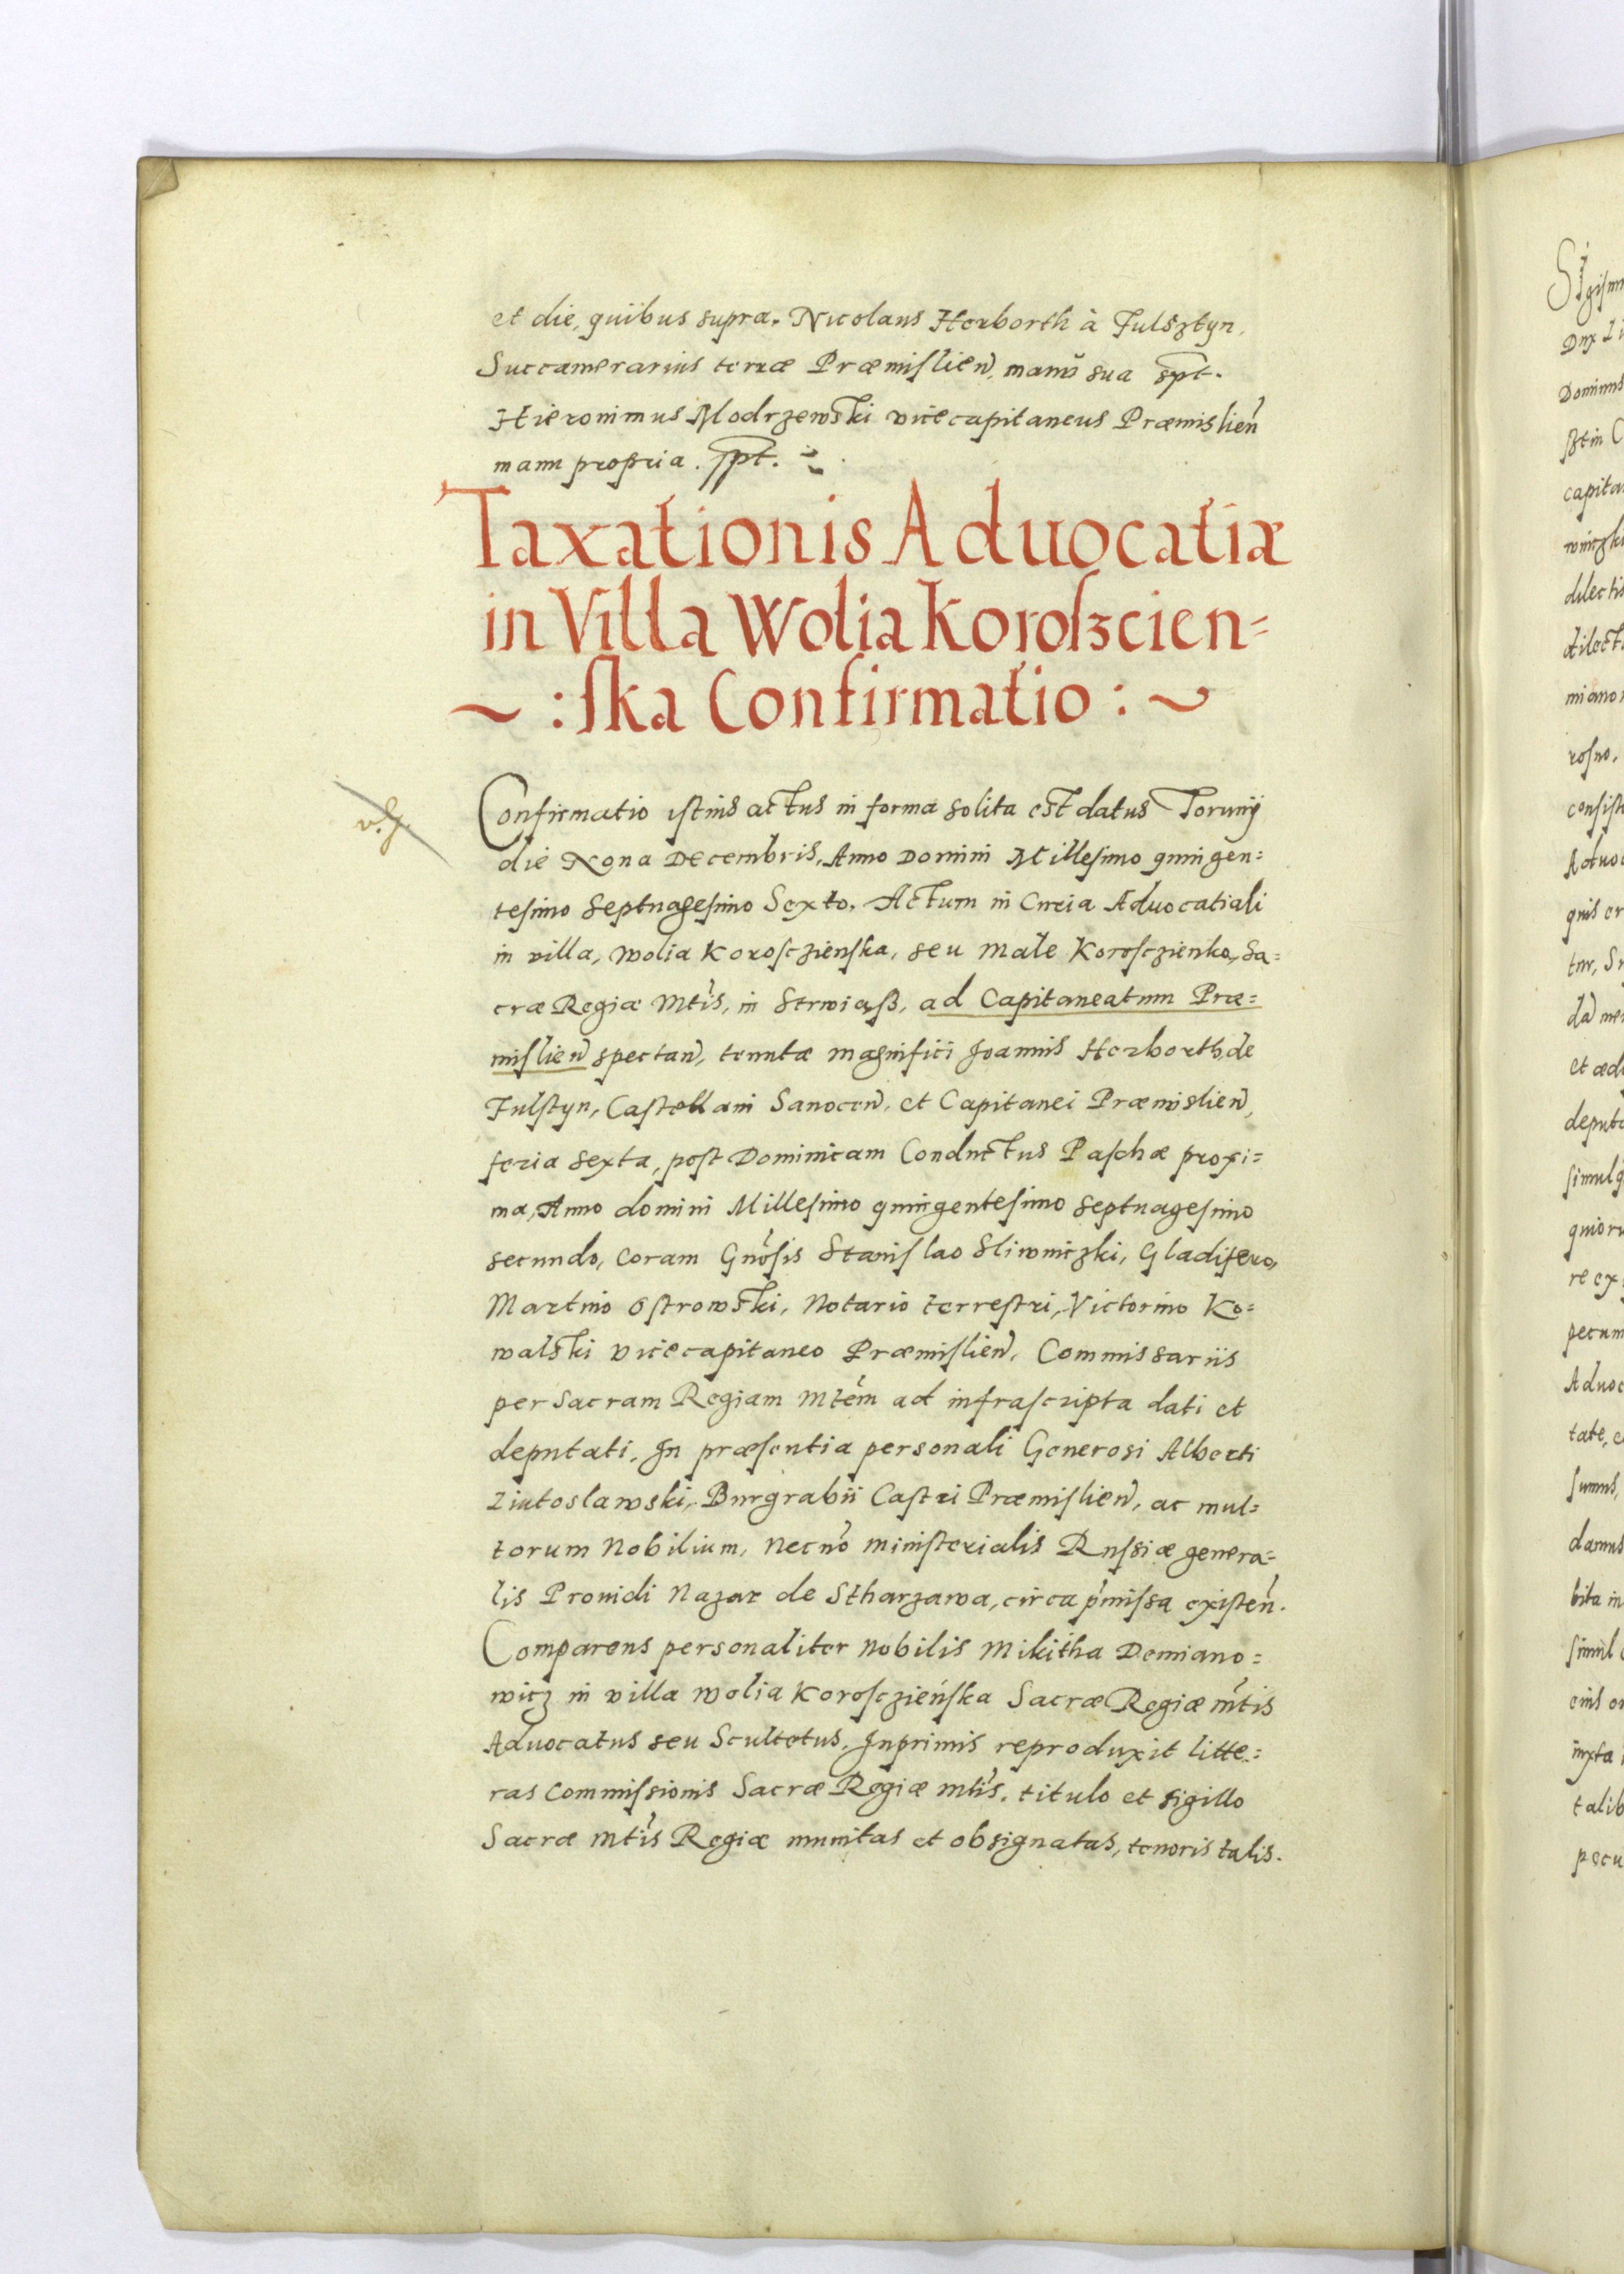 et die, quibus supra. Nicolaus Herborth à Fulsztyn,
Succamerarius terræ Præmiſlien̄, manu sua spt.
Hieronimus Modrzewski vicecapitaneus Præmislien̄
manu propria. ſpt.
Taxationis Aduocatiæ
in Villa Wolia Koroſzcien=
~ : ſka Confirmatio : ~
Confirmatio iſtius actus in forma solita est datus Torunij
die Nona Decembris, Anno Domini Milleſimo quingen=
teſimo Septuageſimo Sexto. Actum in Curia Aduocatiali
in villa, Wolia Koroſczienſka, seu Male Koroſczienko, Sa=
cræ Regiæ Mtis, in Strwiąß, ad Capitaneatum Præ=
miſlien̄ spectan̄, tenutæ magnifici Joannis Herborth, de
Fulſtyn, Caſtellani Sanocen̄, et Capitanei Præmislien̄,
feria sexta, poſt Dominicam Conductus Paſchæ proxi=
ma, Anno domini Milleſimo quingenteſimo Septuageſimo
secundo, coram Gnōſis Staniſlao Sliwniczki, Gladifero,
Martino Oſtrowski, Notario terreſtri, Victorino Ko=
walski vicecapitaneo Præmiſlien̄, Commissariis
per Sacram Regiam Mtēm ad infraſcripta dati et
deputati, In præſentia personali Generosi Alberti
Ziutoslawski, Burgrabii Caſtri Præmiſlien̄, ac mul=
torum Nobilium, necnō miniſterialis Ruſsiæ genera=
lis Prouidi Nazar de Stharzawa, circa p̄miſsa exiſten̄.
Comparens personaliter nobilis Mikitha Demiano=
wicz in villa Wolia Koroſczieńſka Sacræ Regiæ mtis
Aduocatus seu Scultetus, Inprimis reproduxit litte=
ras Commiſsionis Sacræ Regiæ mtis, titulo et sigillo
Sacræ Mtis Regiæ munitas et obsignatas, tenoris talis.